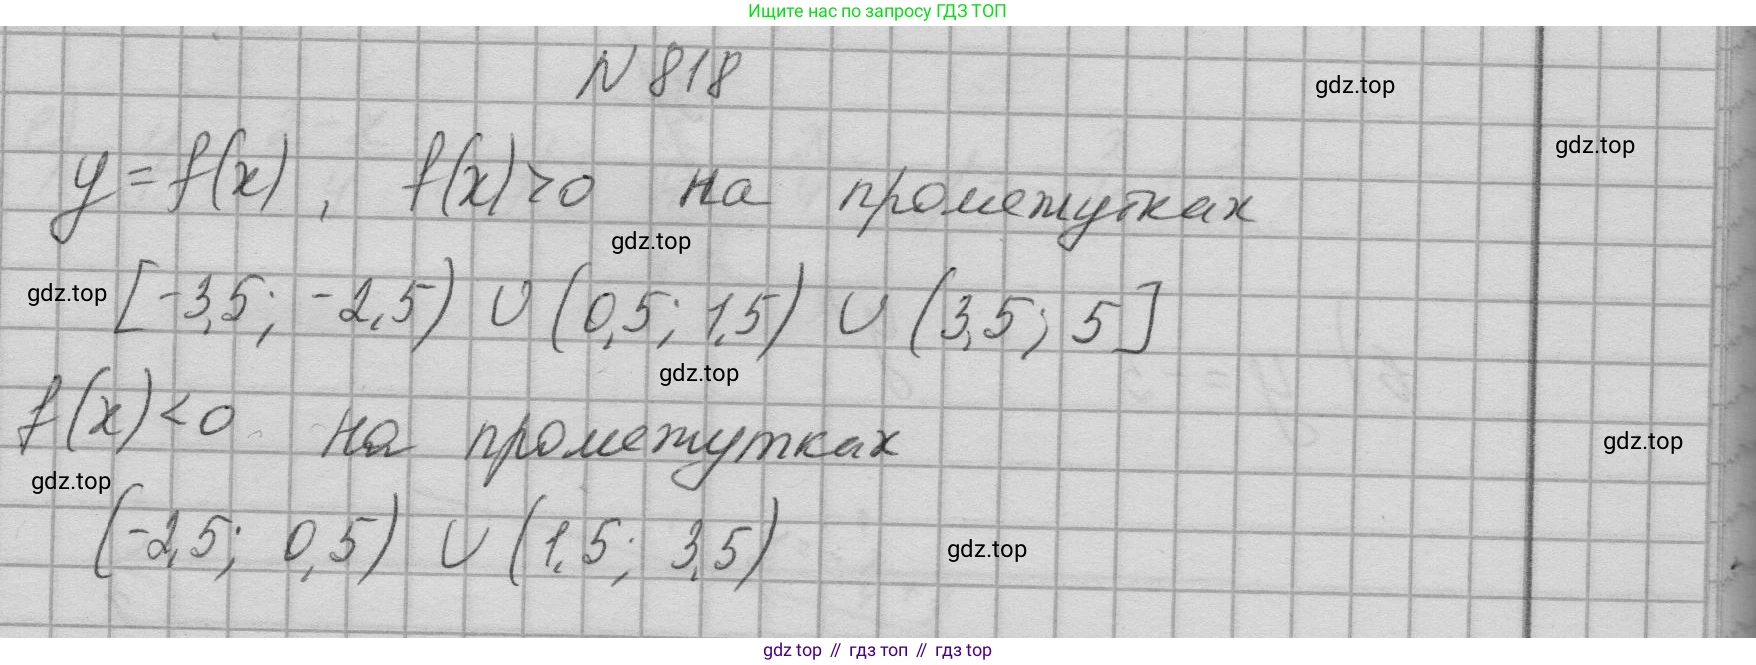 Ищите нас по запросу ГДЗ ТОП
N 818
gdz.top
gdz.top
y = f(x), f(x) > 0 на промежутках
gdz.top
gdz.top
[-3,5; -2,5) ∪ (0,5; 1,5) ∪ (3,5; 5]
gdz.top
f(x) < 0 на промежутках
gdz.top
gdz.top
(-2,5; 0,5) ∪ (1,5; 3,5)
gdz.top
gdz top // гдз топ // гдз top